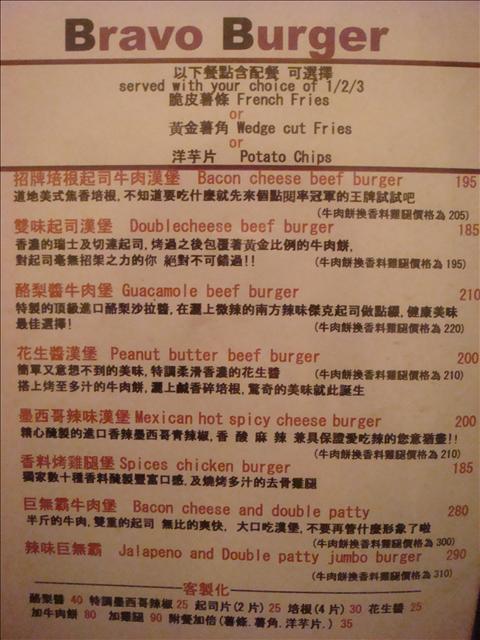 Bravo Burger
以下餐點含配餐 可選擇
served with your choice of 1/2/3
脆皮薯條 French Fries
or
黃金薯角 Wedge cut Fries
or
洋芋片 Potato Chips
招牌培根起司牛肉漢堡 Bacon cheese beef burger 195
道地美式焦香培根,不知道要吃什麼就先來個點閱率冠軍的王牌試試吧
(牛肉餅換香料雞腿價格為 205)
雙味起司漢堡 Doublecheese beef burger 185
香濃的瑞士及切達起司,烤過之後包覆著黃金比例的牛肉餅,
對起司毫無招架之力的你 絕對不可錯過!! (牛肉餅換香料雞腿價格為 195)
酪梨醬牛肉堡 Guacamole beef burger 210
特製的頂級進口酪梨沙拉醬,在灑上微辣的南方辣味傑克起司做點綴,健康美味
最佳選擇! (牛肉餅換香料雞腿價格為 220)
花生醬漢堡 Peanut butter beef burger 200
簡單又意想不到的美味,特調柔滑香濃的花生醬 (牛肉餅換香料雞腿價格為 210)
搭上烤至多汁的牛肉餅,灑上鹹香碎培根,驚奇的美味就此誕生
墨西哥辣味漢堡 Mexican hot spicy cheese burger 200
精心醃製的進口香辣墨西哥青辣椒,香 酸 麻 辣 兼具保證愛吃辣的您意猶盡!!
(牛肉餅換香料雞腿價格為 210)
香料烤雞腿堡 Spices chicken burger 185
獨家數十種香料醃製豐富口感,及燒烤多汁的去骨雞腿
巨無霸牛肉堡 Bacon cheese and double patty 280
半斤的牛肉,雙重的起司 無比的爽快, 大口吃漢堡,不要再管什麼形象了啦
(牛肉餅換香料雞腿價格為 300)
辣味巨無霸 Jalapeno and Double patty jumbo burger 290
(牛肉餅換香料雞腿價格為 310)
客製化
酪梨醬 40 特調墨西哥辣椒 25 起司片(2 片) 25 培根(4 片) 30 花生醬 25
加牛肉餅 80 加雞腿 90 附餐加倍(薯條.薯角.洋芋片.) 35